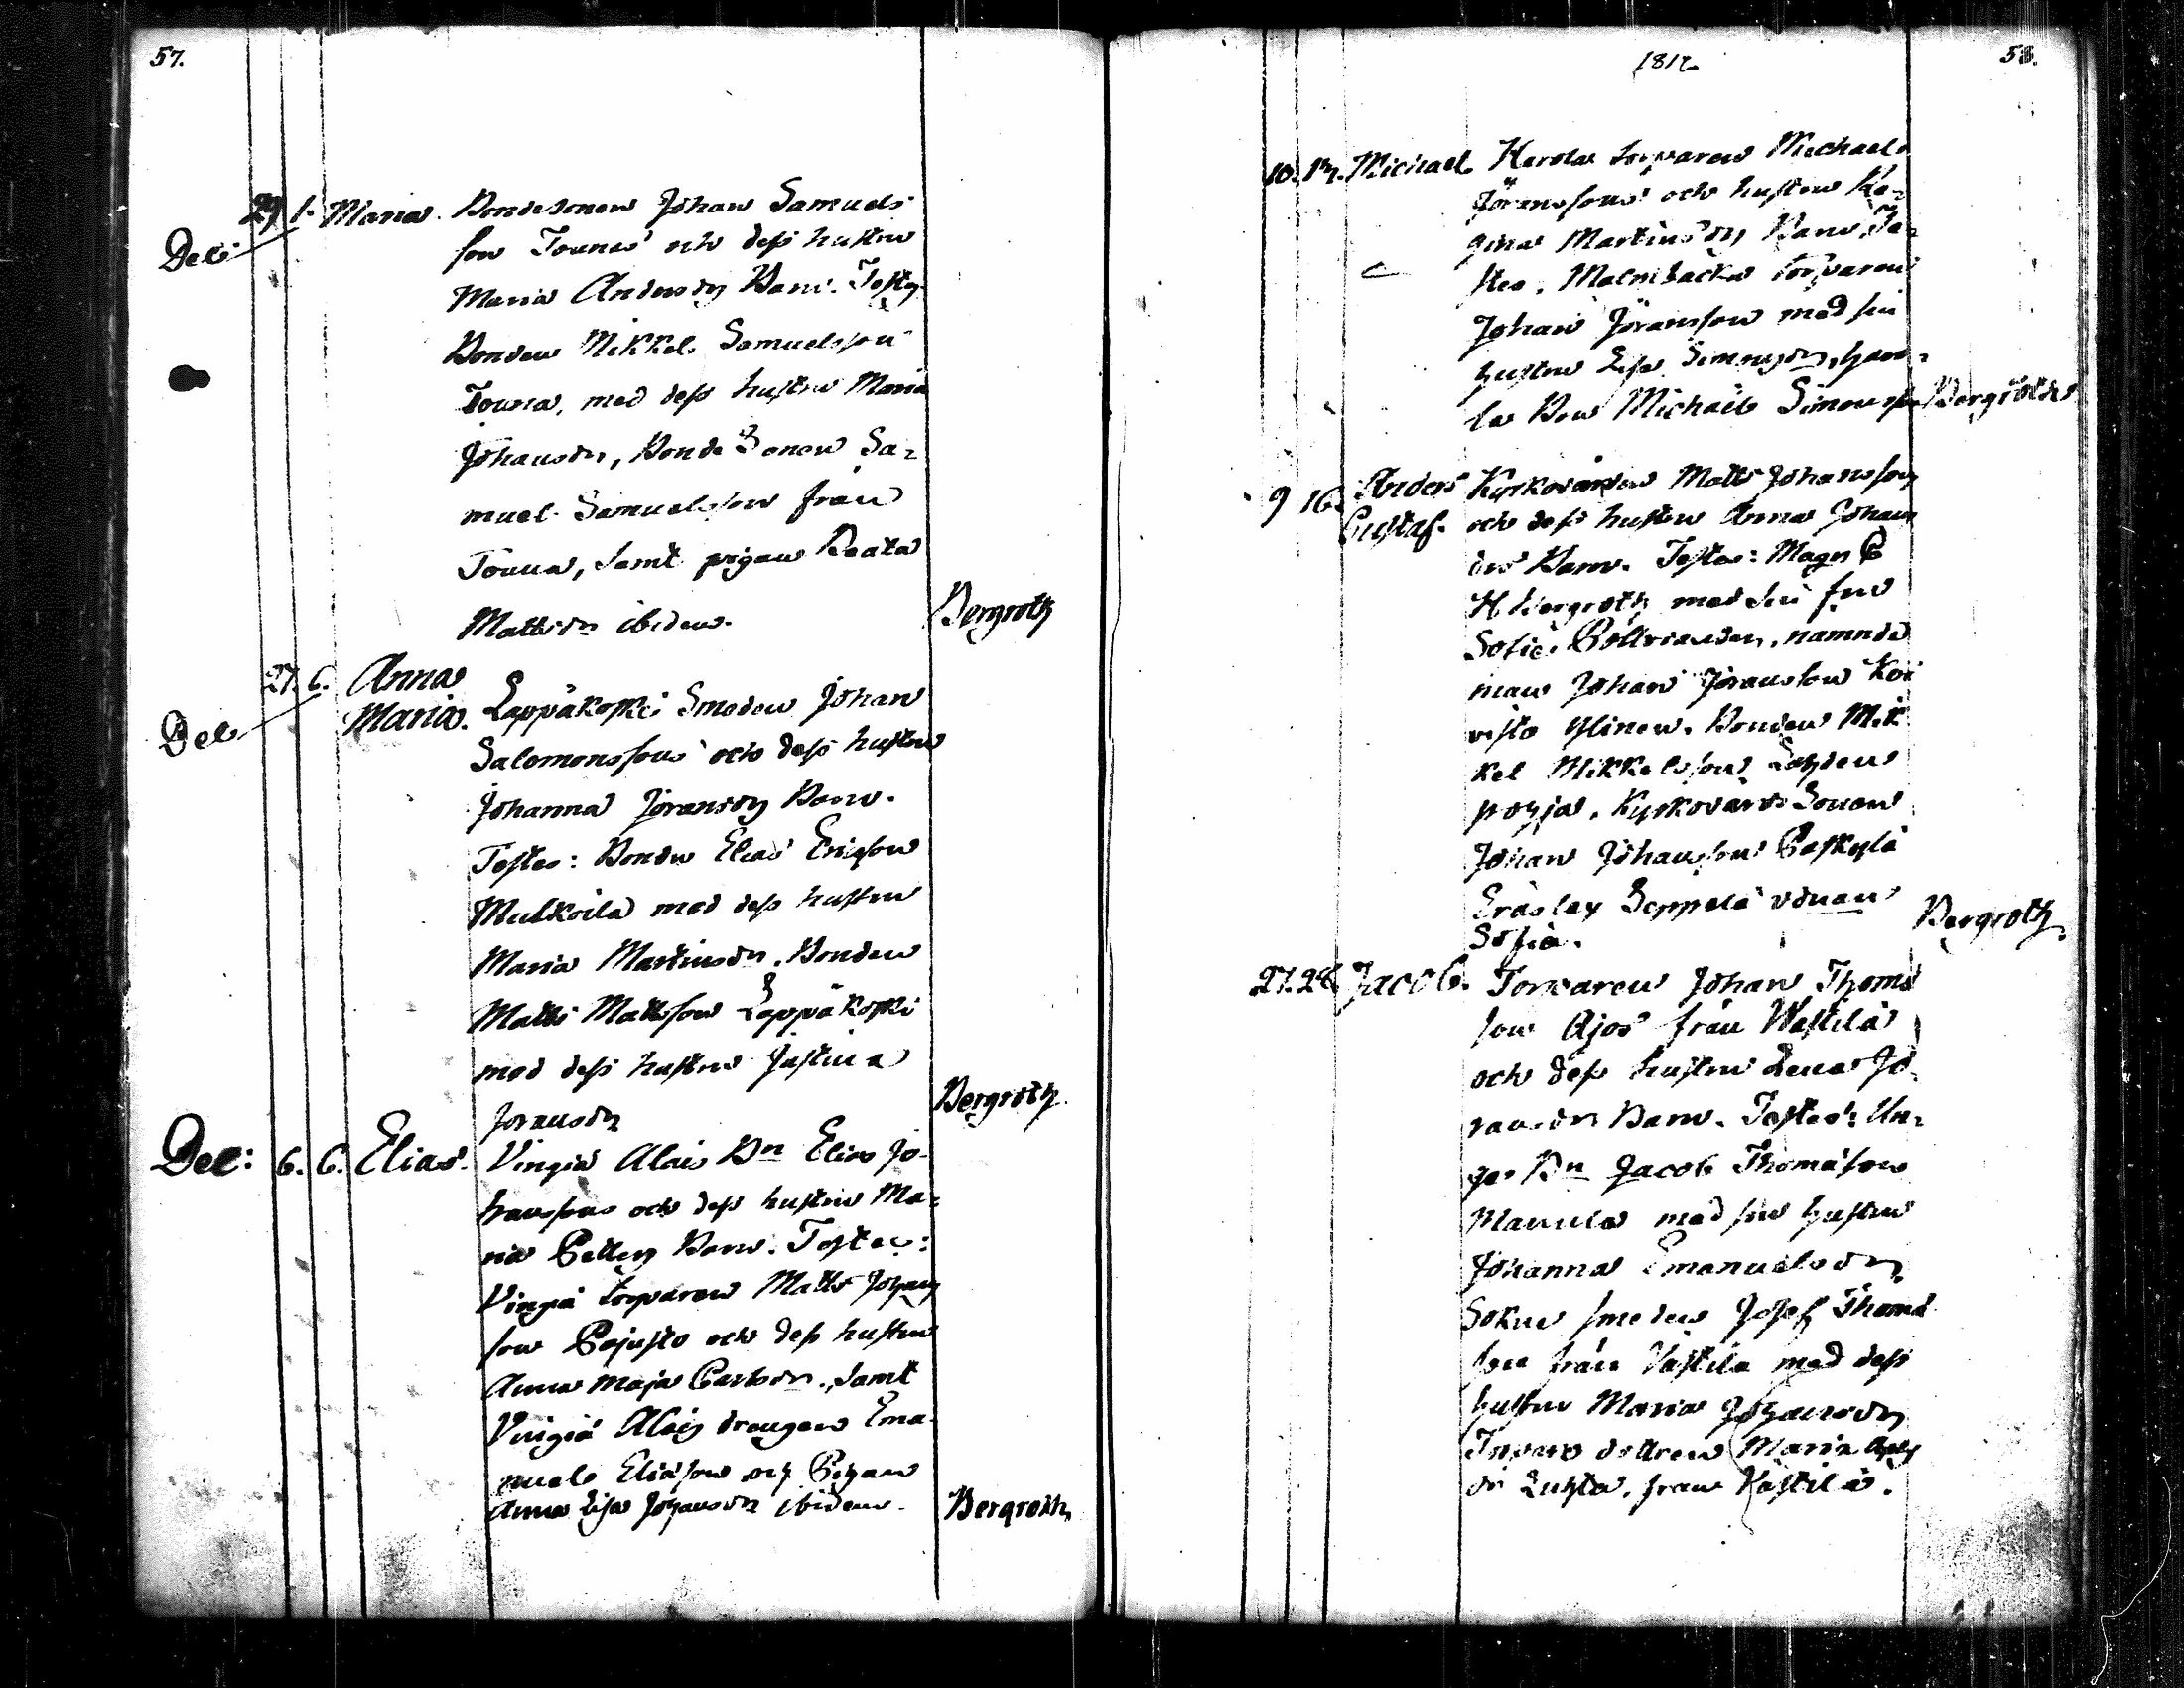 57.
29 1. Maria. Bondesonen Johan Samuels
Dec: son Tounas och dess hustru
Maria Andersdr Barn. Testes
Bonden Mikkel Samuelsson
Touna, med dess hustru Maria
Johansdr, Bonde Sonen Sa=
muel Samuelsson från
Touna, samt pigan Beata
Mattsdr ibidem. Bergroth
27. 6. Anna
Maria. Lappäkoski Smeden Johan
Dec Salomonssons och dess hustru
Johanna Jöransdr Barn.
Testes: Bonden Elias Ericson
Mulkoila med dess hustru
Maria Martinsdr. Bonden
Matts Mattsson Lappäkoski
med dess hustru Justina
Joransdr Bergroth.
Dec: 6. 6. Elias. Virgiä Alais Bn Elias Jo-
hanssons och dess hustru Ma=
ria Pettersdr Barn. Testes:
Virgiä torparen Matts Johans
son Pajusto och dess hustru
Anna Maja Carlsdr., samt
Virgiä Alais drengen Ema-
nuel Eliasson och Pigan
Anna Lisa Johansdr ibidem. Bergroth
1812 58.
10. 12. Michael Herola torparen Michael
Jöranssons och hustru Re=
gina Martinsdr Barn. Te=
stes. Malmbacka torparen
Johan Jöransson med sin
hustru Lisa Simonsdr, gam=
la Bon Michael Simonsson Bergroth
9 16. Anders Kyrkovärden Matts Johansson
Gustaf. och dess hustru Anna Johans
drs Barn. Testes: Magn C
H Bergroth med sin fru
Sofia, namnde
man Johan Jöransson Koi
visto Ylinen. Bonden Mik
kel Mikkelsson Lahden
pohja. Kyrkovärds Sonen
Johan Johansson Paskylä
Seppelä
Sofia. Bergroth.
27. 28. Jacob. Torparen Johan Thoms
son Ajos från Wastila
och dess hustru Lena Jö
ransdr Barn. Testes: Un=
ge Bn Jacob Thomasson
Mannila med sin hustru
Johanna Emanuelsdr
Sokne smeden Josef Thoms
son från Vastila med dess
hustru Maria Johansdr
dottren Maria
dr Luhta, från Vastila.